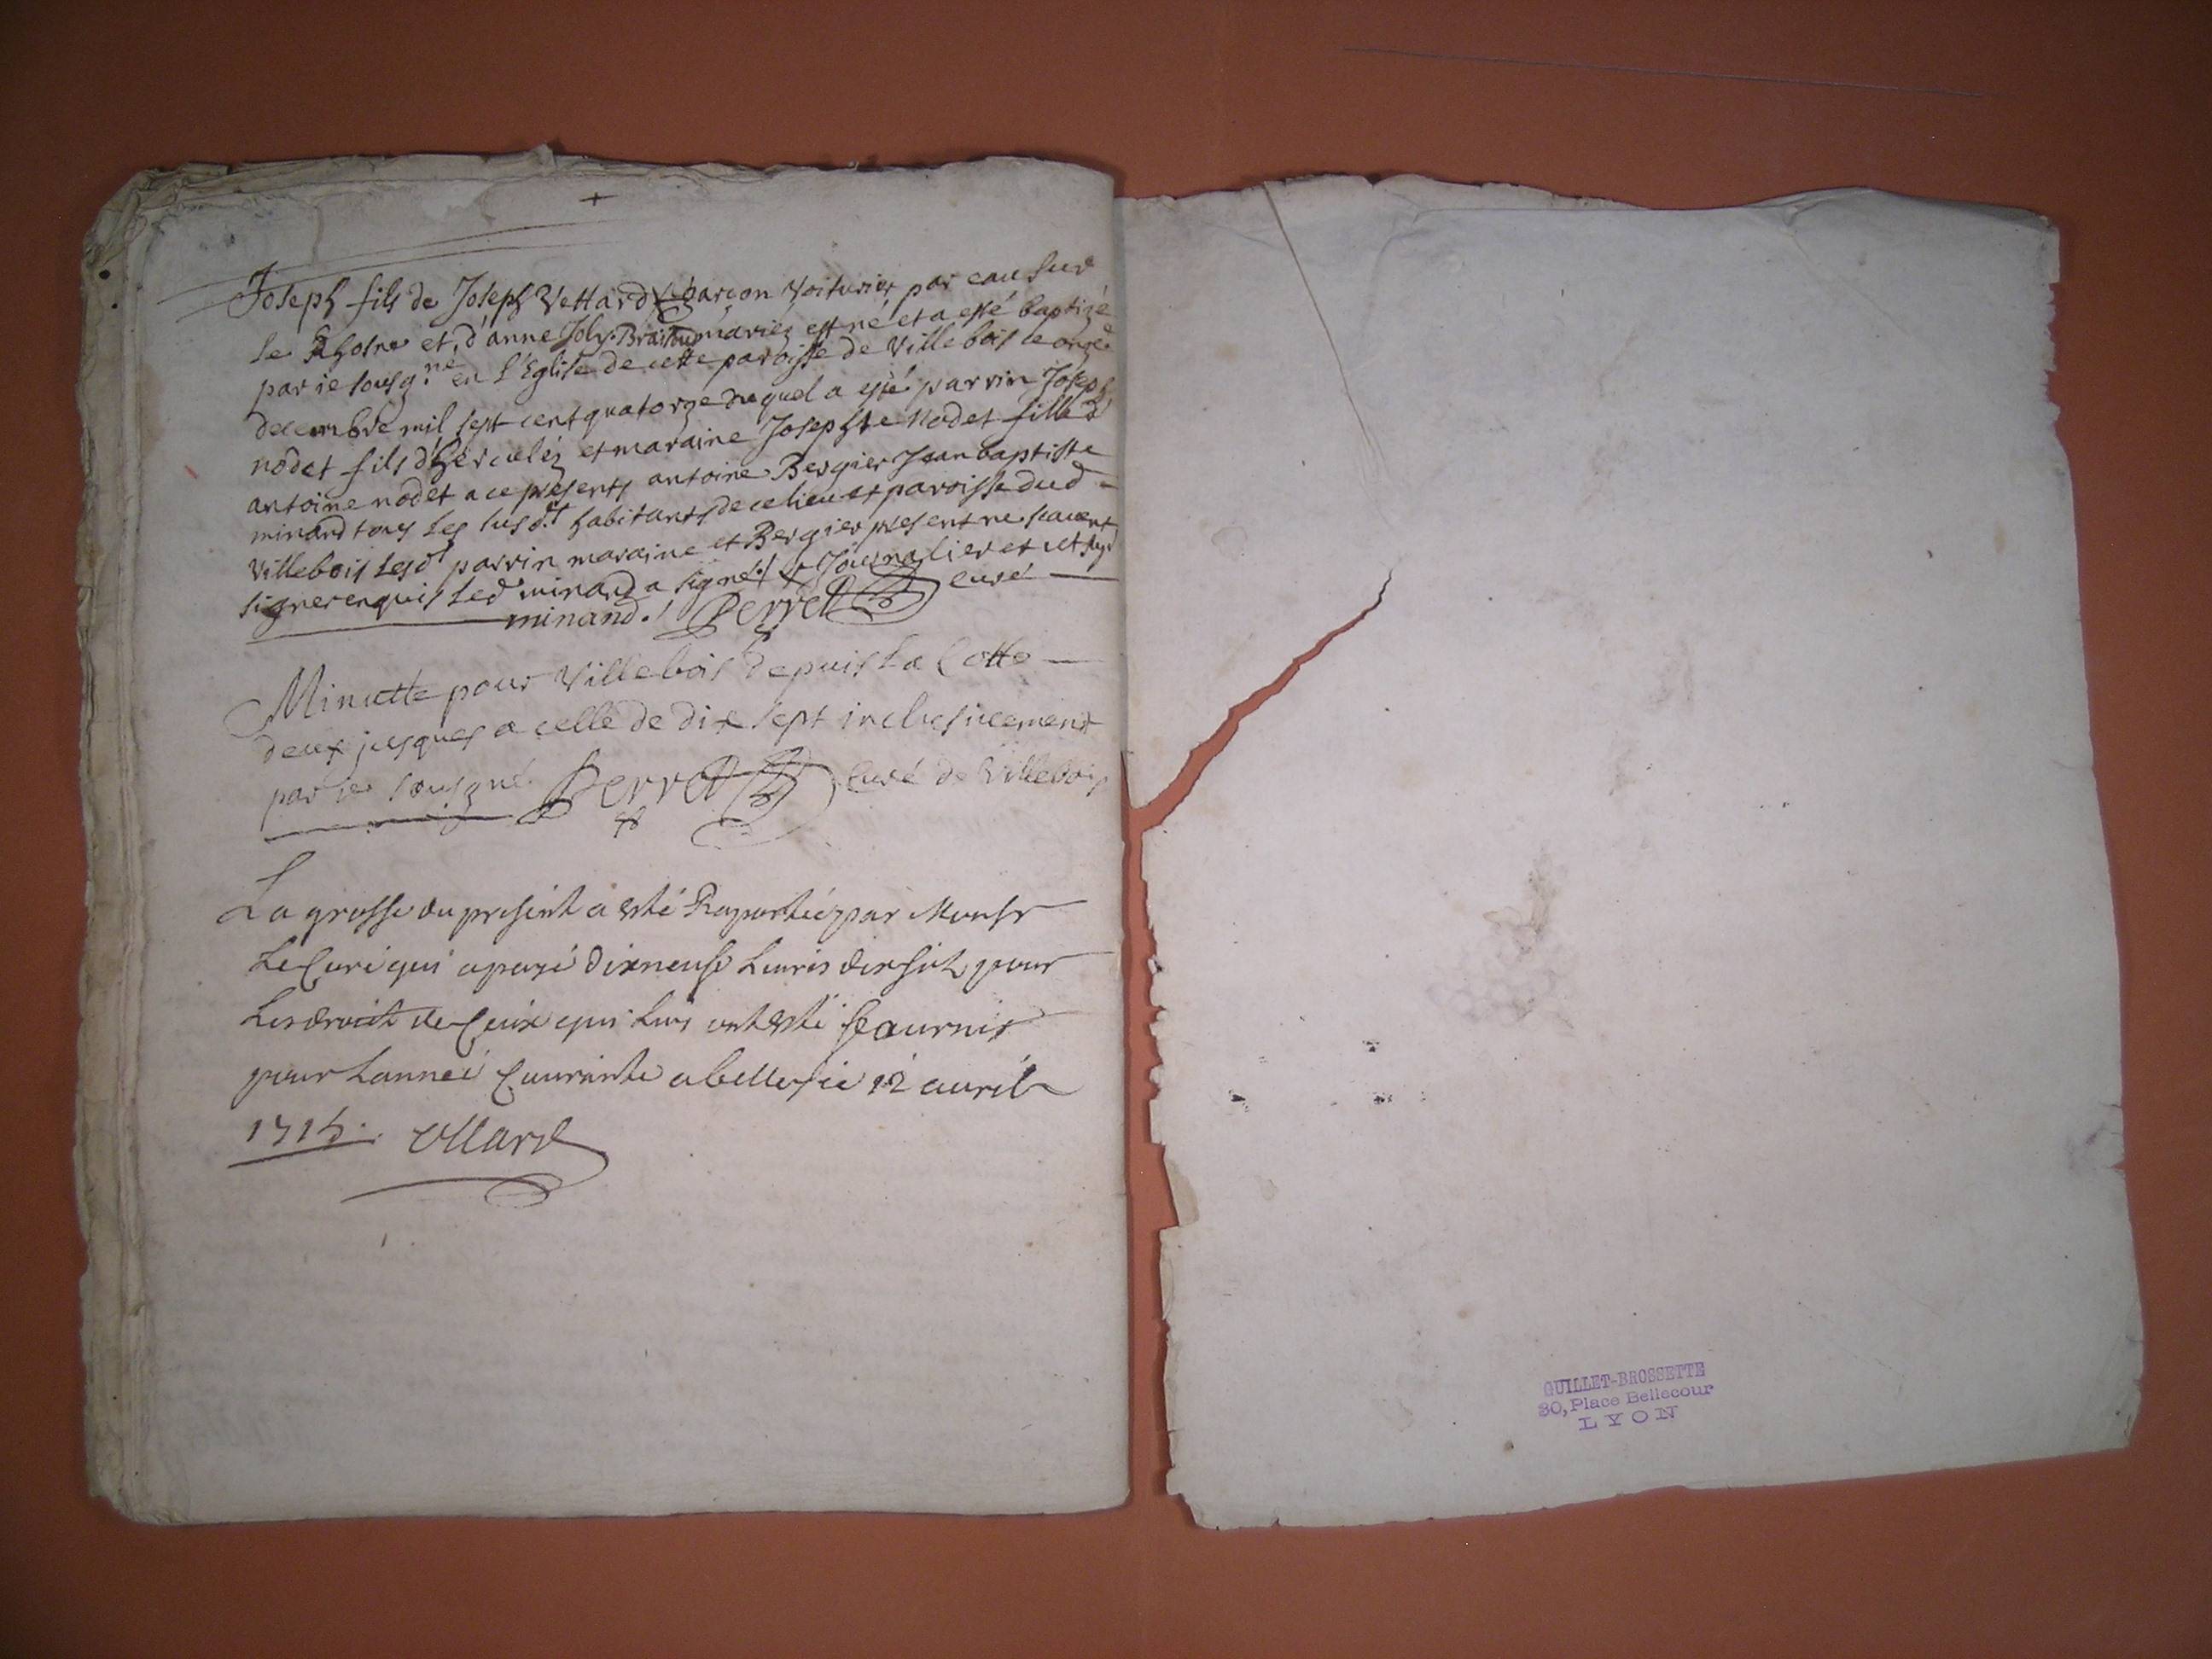 Joseph fils de Joseph Vettard garçon voiturier par eau sur
le Rhosne et d'anne Joly Braitoud mariéz est né et a esté baptizé
par ie sousg.né en l'Eglise de cette paroisse de Villebois le onze
decembre mil sept cent quatorze duquel a esté parrin Joseph
nodet fils d'herculéz et maraine Josephte Nodet fille d'
antoine nodet a ce presents antoine Bergier Jean baptiste
minand tous les susd.ts habitants de ce lieu et paroisse dud
Villebois lesd.t parrin maraine et Bergier present ne scauent
signer enquis led minand a signé Journalier et
minand. Perret curé
Minutte pour Villebois depuis la Cotte
deux jusques a celle de dix sept inclusiuement
par ie sousgné Perret Curé de Villebois
La grosse du present a esté Raportée par Monsr
Le Curé qui a payé dixneuf Liures dix pour
Les droits de Ceux qui Luy ont esté fournis
pour L'année Courante a belley ce 12 auril
1715. Ullard
QUILLET-BROSSETTE
30, Place Bellecour
LYON